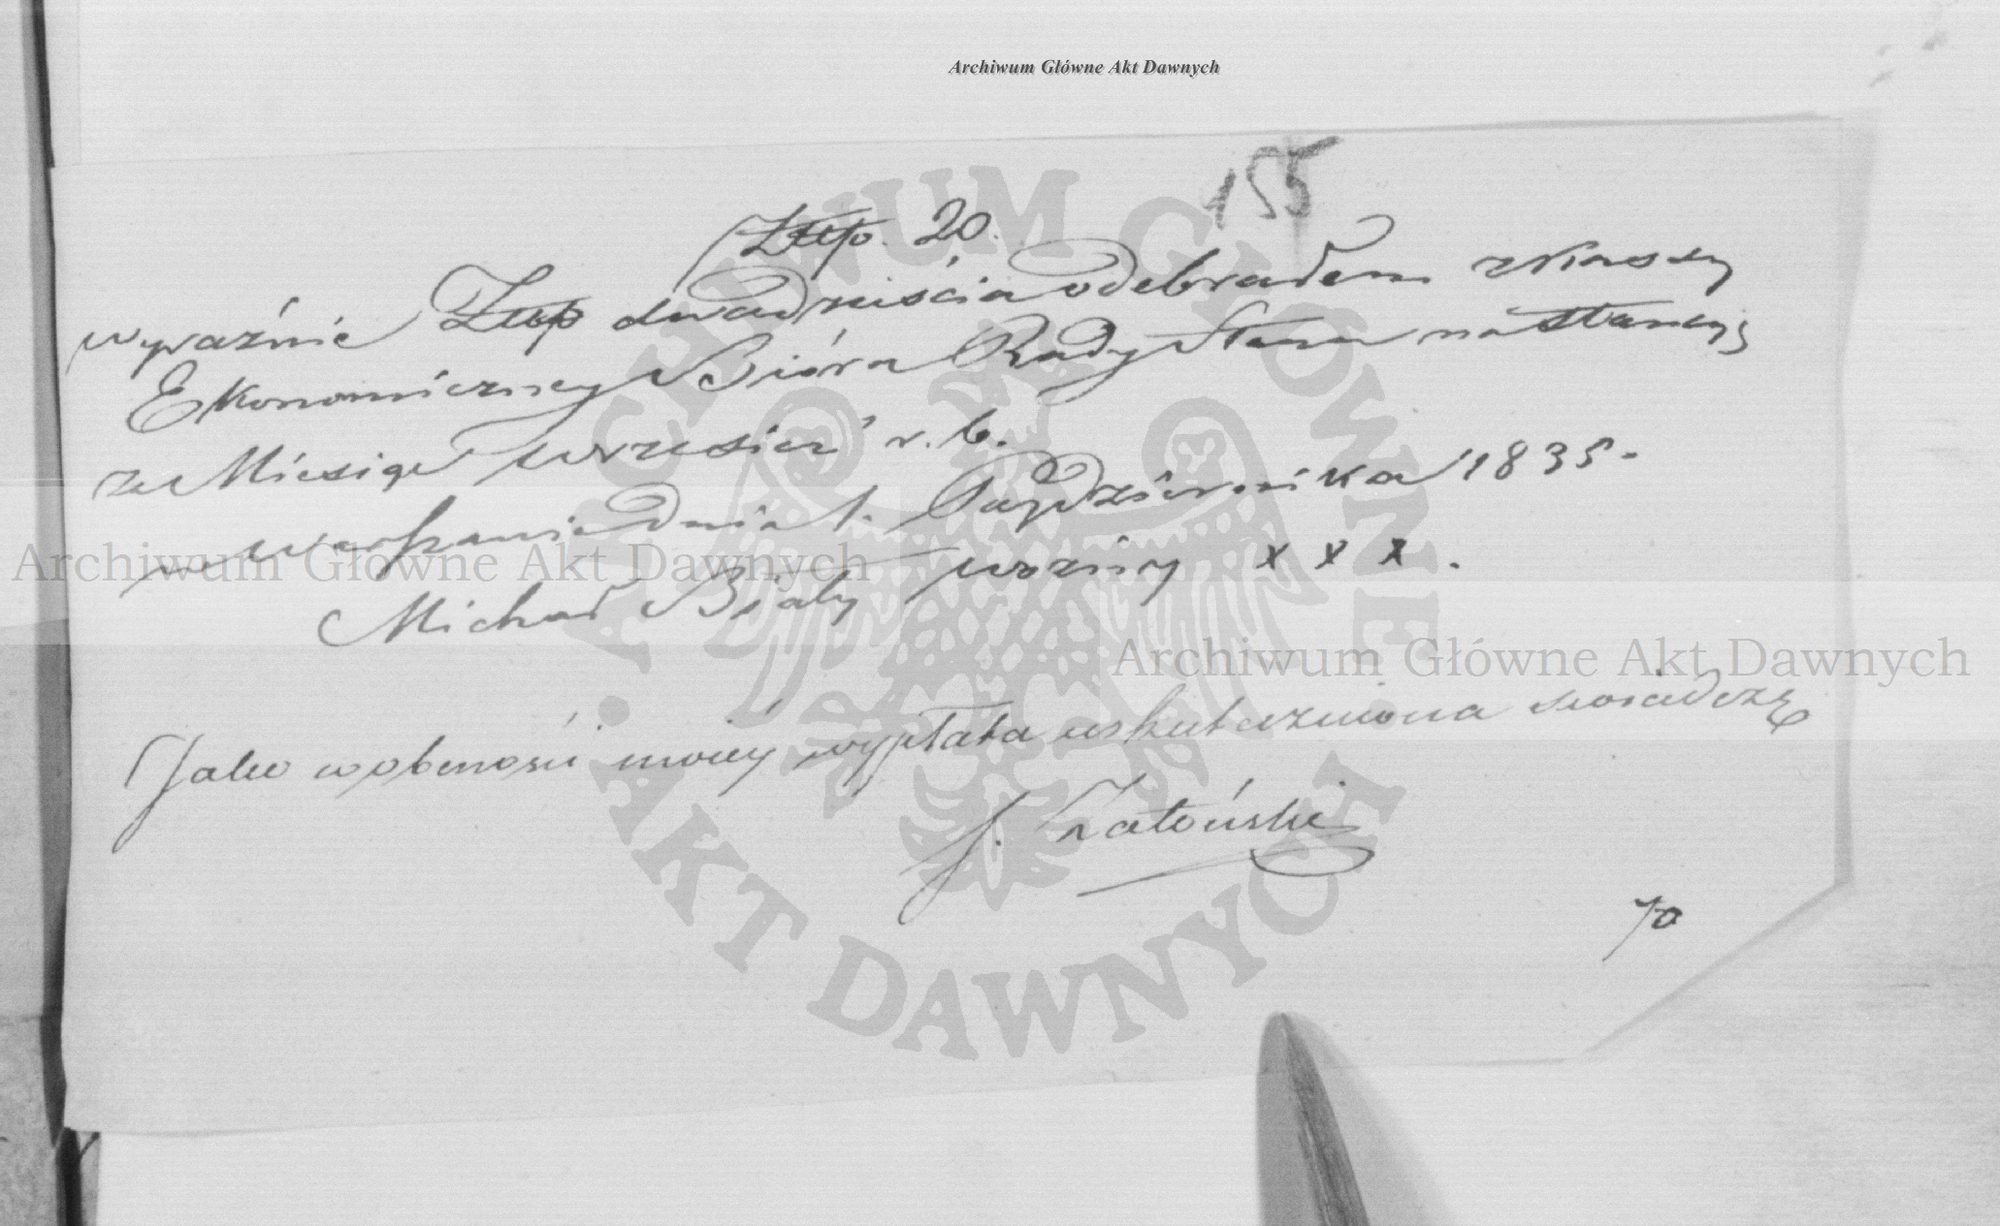 Archiwum Główne Akt Dawnych
155
Złtp. 20.
wyraźnie Złtp dwadzieścia odebrałem z Kassy
Ekonomiczney Bióra Rady Stanu na Stancyą
za Miesiąc wrzesień r. b.
w Warszawie dnia 1. Października 1835.
Michał Biały woźny x x x.
Jako w obecności moiey wypłata uskuteczniona swiadczę
J. Załuski
70
ARCHIWUM GŁÓWNE AKT DAWNYCH
Archiwum Główne Akt Dawnych
Archiwum Główne Akt Dawnych